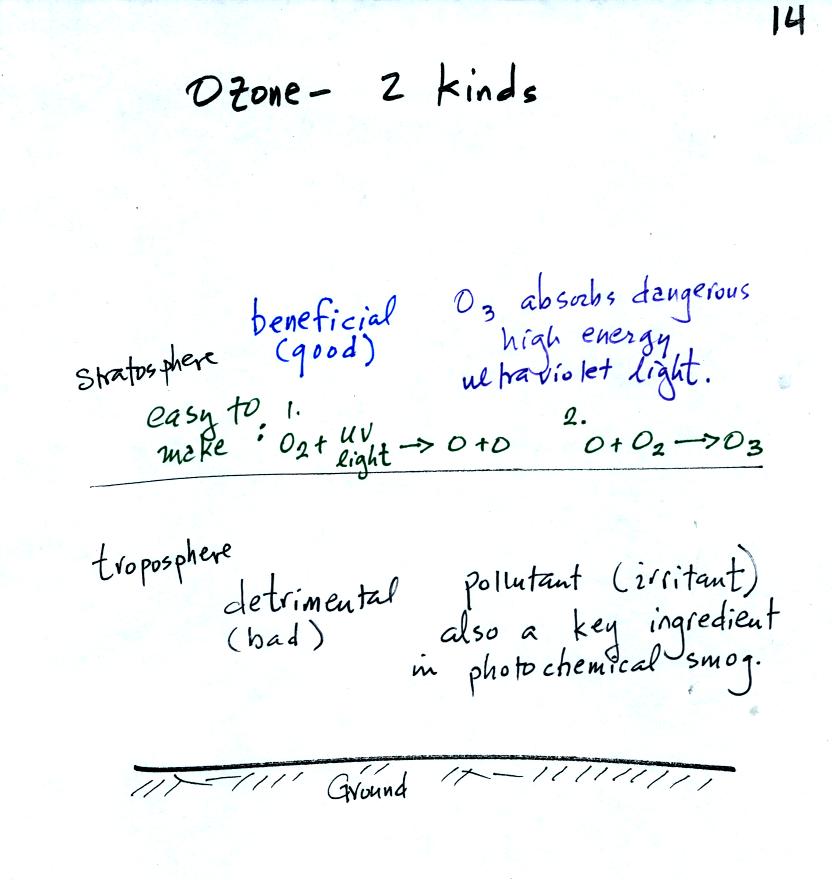 14
Ozone- 2 kinds
beneficial
(good)
O3 absorbs dangerous
high energy
ultraviolet light.
Stratosphere
easy to
make :
1.
O2 + UV light → O + O
2.
O + O2 → O3
troposphere
detrimental
(bad)
pollutant (irritant)
also a key ingredient
in photochemical smog.
Ground